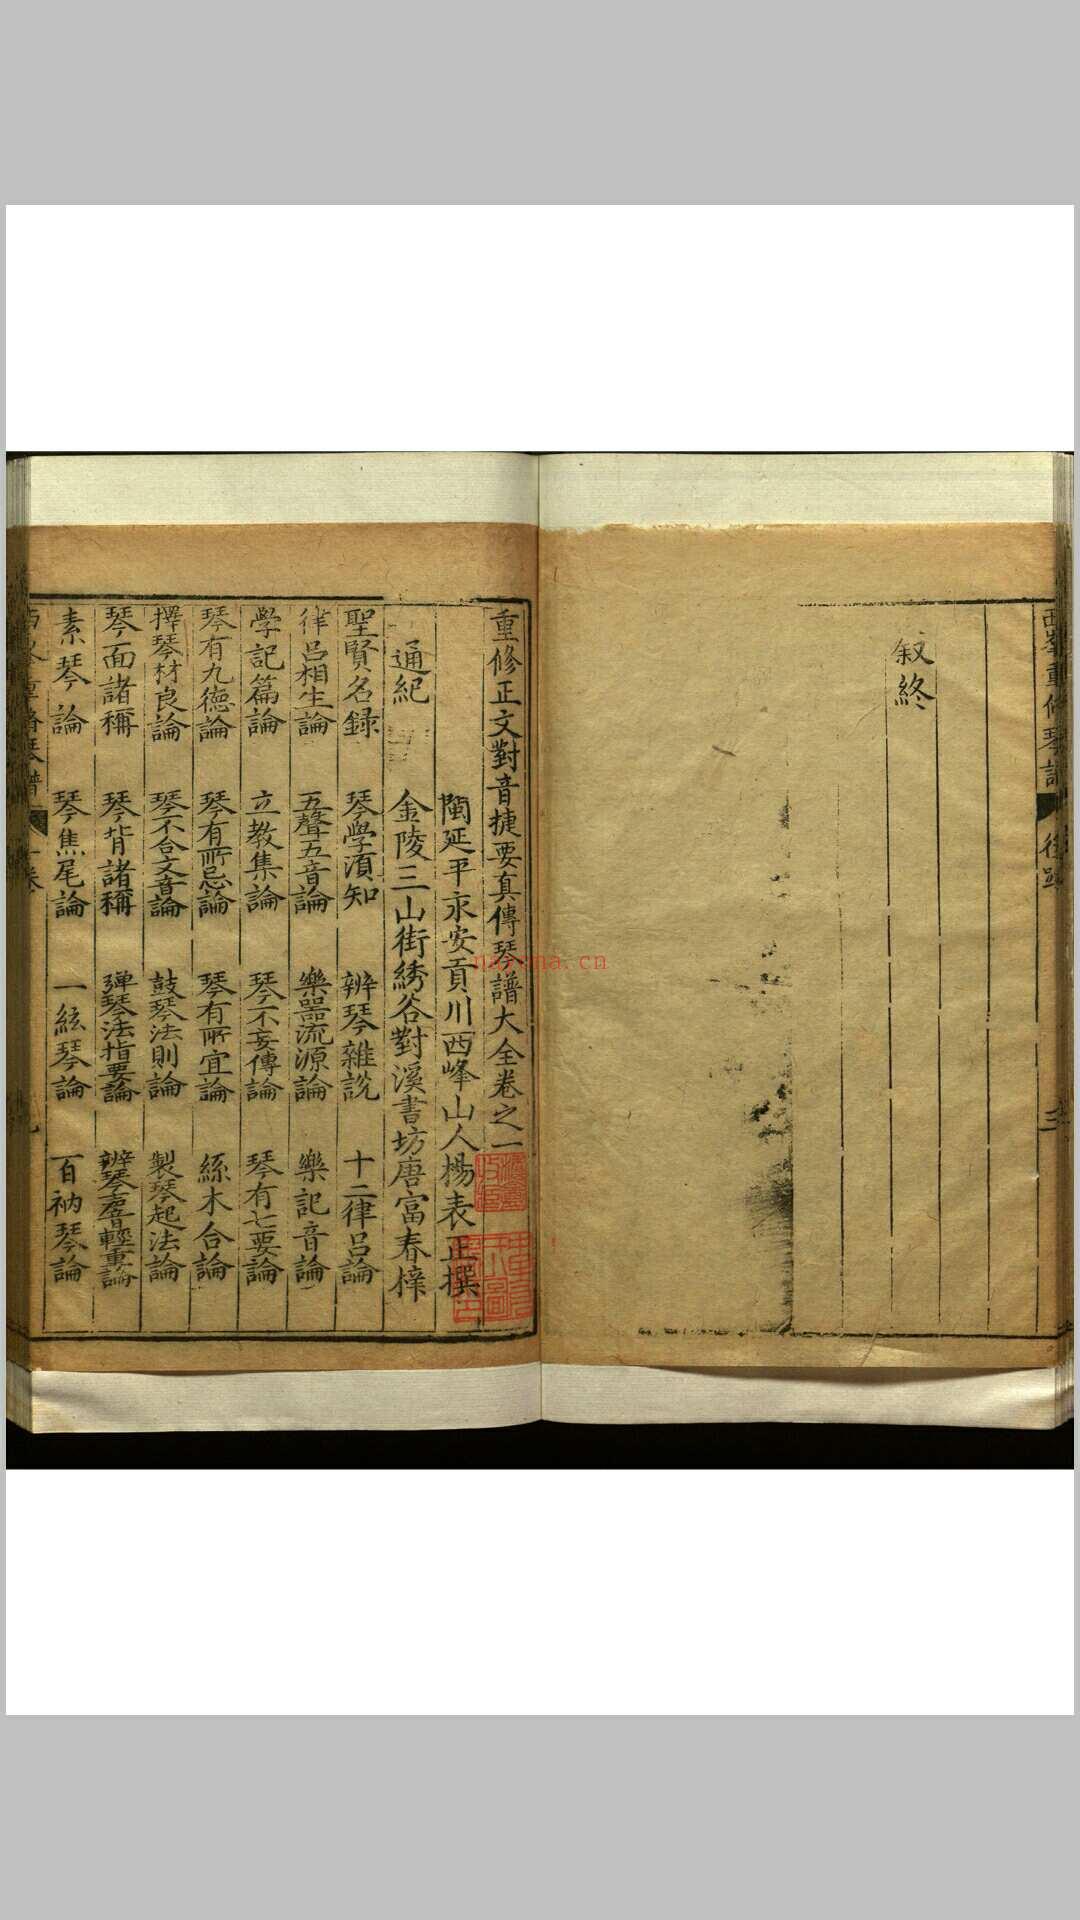 西峯重修琴譜
三
敘終
重修正文對音捷要真傳琴譜大全卷之一
閩延平永安貢川西峰山人楊表正撰
金陵三山街綉谷對溪書坊唐富春梓
通紀
聖賢名録 琴學須知 辨琴雜説 十二律呂論
律呂相生論 五聲五音論 樂器流源論 樂記音論
學記篇論 立教集論 琴不妄傳論 琴有七要論
琴有九德論 琴有所忌論 琴有所宜論 絲木合論
擇琴材良論 琴不合文音論 鼓琴法則論 製琴起法論
琴面諸稱 琴背諸稱 彈琴法指要論 辨琴聲音輕重論
素琴論 琴焦尾論 一絃琴論 百衲琴論
nayona.cn